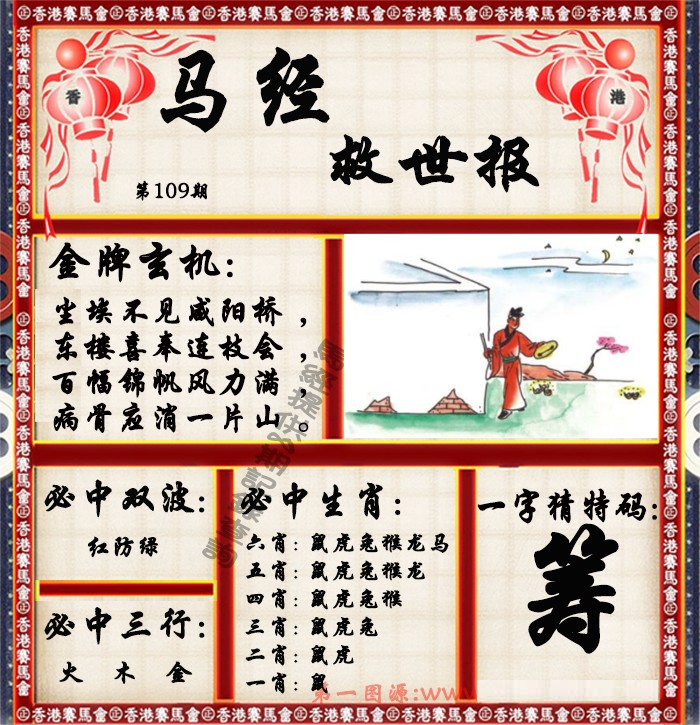 香港賽馬會
香
港
马经
救世报
第109期
金牌玄机：
尘埃不见咸阳桥，
东楼喜奉连枝会，
百幅锦帆风力满，
病骨应消一片山。
必中双波：
红防绿
必中三行：
火 木 金
必中生肖：
六肖：鼠虎兔猴龙马
五肖：鼠虎兔猴龙
四肖：鼠虎兔猴
三肖：鼠虎兔
二肖：鼠虎
一肖：鼠
一字猜特码：
筹
第一图源:www